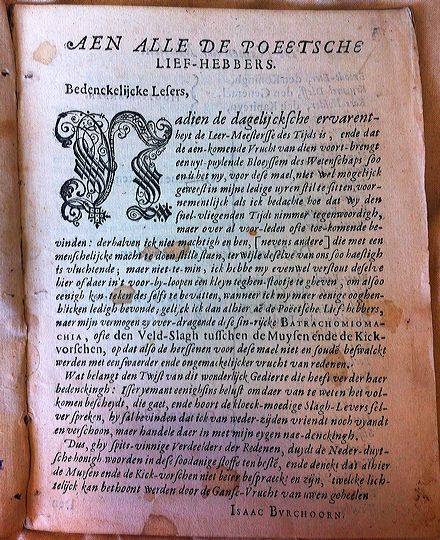 AEN ALLE DE POEETSCHE
LIEF-HEBBERS.
Bedenckelijcke Lesers,
Nadien de dagelijcksche ervarent-
heyt de Leer-Meestersse des Tijds is, ende dat
de aen-komende Vrucht van dien voort-brengt
een uyt-puylende Bloeyssem des Wetenschaps soo
en is't my, voor dese mael, niet wel mogelijck
geweest in mijne ledige uyren stil te sitten, voor-
nementlijck als ick bedachte hoe dat wy den
snel-vliegenden Tijd nimmer tegenwoordigh,
maer over al vor-leden ofte toe-komende be-
vinden: derhalven ick niet machtigh en ben, [nevens andere] die met een
menschelijcke macht te doen stille staen, terwijle deselve van ons soo haestigh
is vluchtende; maer niet-te-min, ick hebbe my evenwel verstout deselve
hier of daer in't voor-by-loopen een kleyn teghen-stootje te gheven, om alsoo
eenigh tekendes selfs te bevatten, wanneer ick my maer eenige ooghen-
blicken ledigh bevonde; gelijck ick dan alhier aẽ de Poëtsche Lief-hebbers,
naer mijn vermogen zy over-dragende dese sin-rijcke BATRACHOMIOMA-
CHIA, ofte den Veld-Slagh tusschen de Muysen ende de Kick-
vorschen, op dat also de herssenen voor dese mael niet en soudẽ beswalckt
werden met een swaerder ende ongemackelijcker vrucht van redenen.
Wat belangt den Twist van dit wonderlijck Gedierte die heeft verder haer
bedenckingh: Isser yemant eenighsins belust om daer van te weten het vol-
komen bescheydt, die gaet, ende hoort de kloeck-moedige Slagh-Levers sel-
ver spreken, hy sal bevinden dat ick van weder-zijden vriendt noch vyandt
en verschoon, maer handele daer in met mijn eygen nae-denckingh.
Dus, ghy spits-vinnige Verdeelders der Redenen, duyd de Neder-duyt-
sche honigh woorden in dese soodanige stoffe ten bestẽ, ende denckt dat alhier
de Muysen ende de Kick-vorschen niet beter bespraeckt en zijn, 'twelcke lich-
telijck kan bethoont werden door de Ganse-Vrucht van uwen geheelen
ISAAC BVRCHOORN.